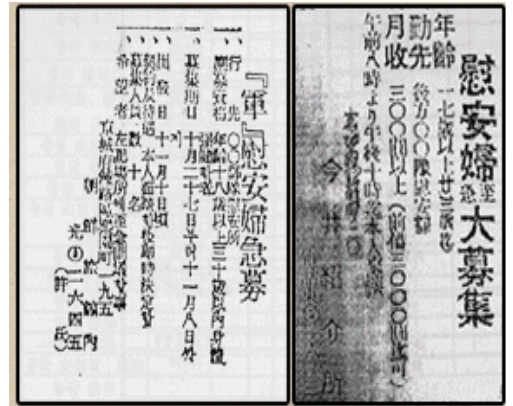 慰安婦至急大募集
年齢 一七歳以上廿三歳迄
勤先 後方〇〇隊慰安部
月收 三〇〇圓以上(前借三〇〇〇圓迄可)
午前八時より午後十時迄本人來談
今井紹介所
『軍』慰安婦急募
一、行先 〇〇部隊慰安所
一、應募資格 年齡十八歲以上三十歲以內身體
一、募集期日 十月二十七日 十一月八日
一、出發日 十一月十日頃
一、契約及待遇 本人面談 即時決定
一、募集人員 數十名
一、希望者 左記場所 至急問議
京城府鍾路區 町一九五
朝鮮旅館內
光 二六四五
(許氏)